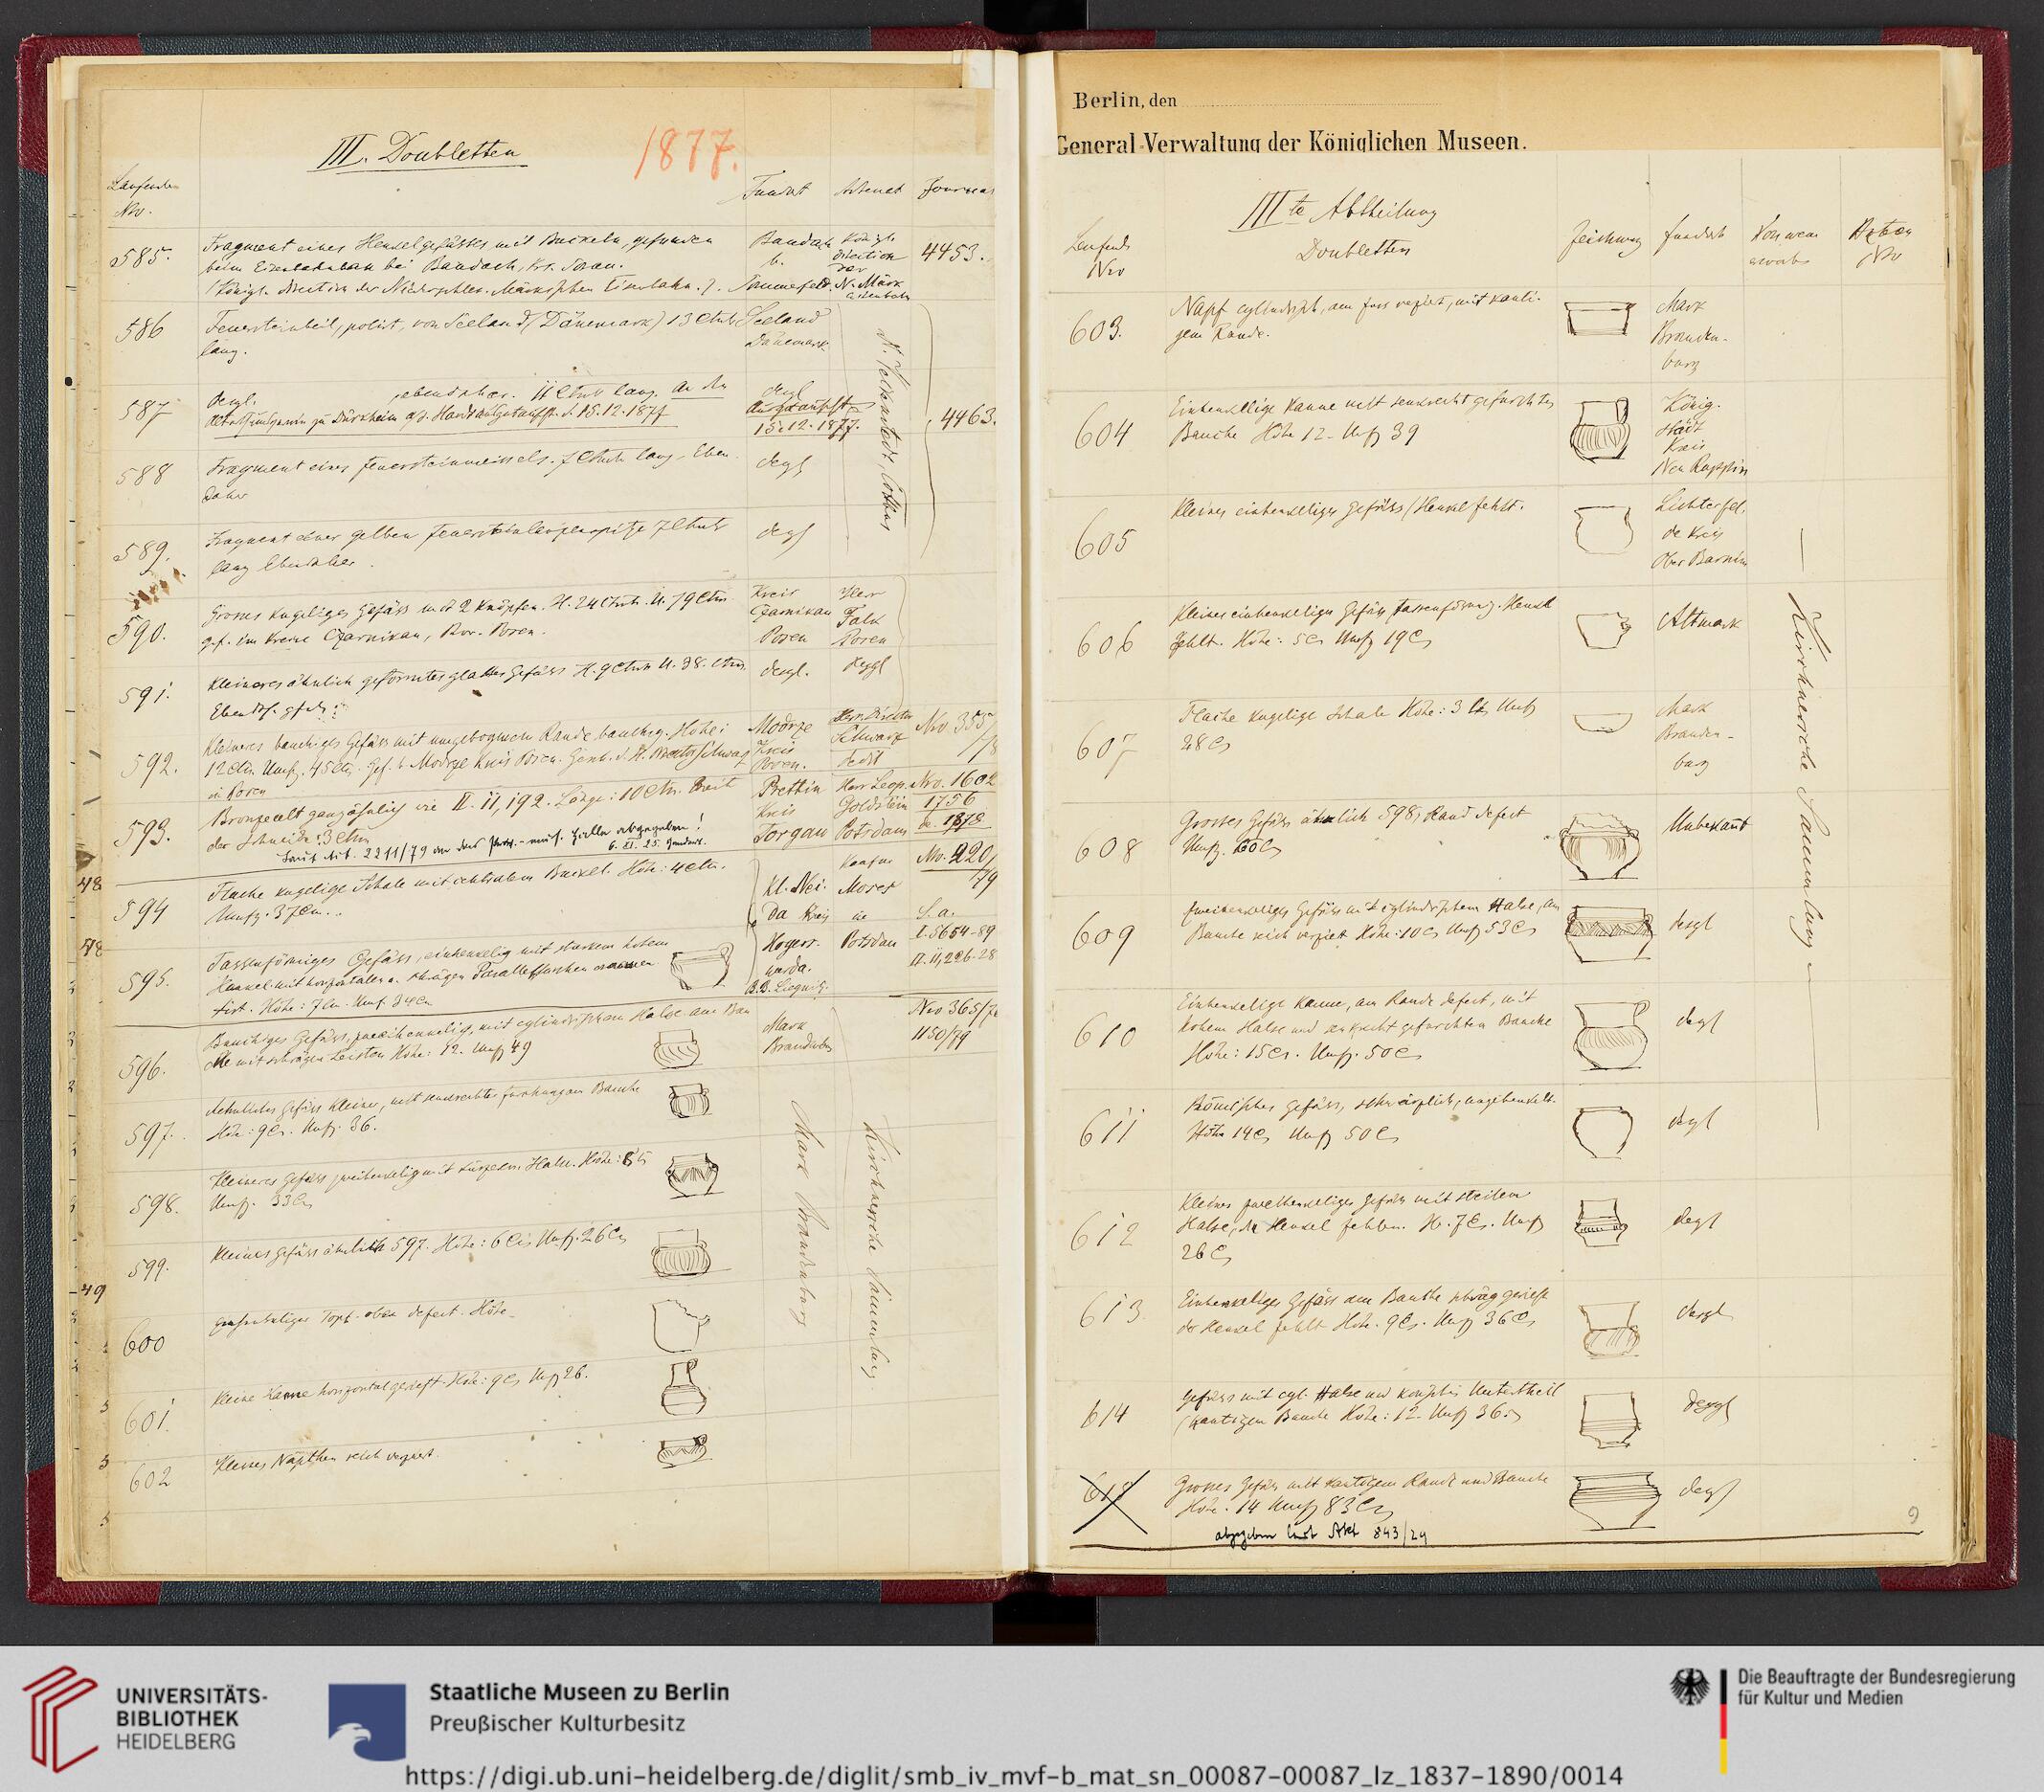 III. Doubletten
1877.
Laufende
Nro.
Fundort
Journal
585.
Fragment eines Henkelgefässes mit Buckeln, gefunden
beim Eisenbahnbau bei Baudach, Kr. Sorau.
Baudach
b.
Sommerfeld
Königl.
Direction
der
N. Märk
Eisenbahn
4453.
586
Feuersteinbeil, polirt, von Seeland (Dänemark) 13 Ctmtr
lang.
Seeland
Dänemark
587
desgl. ebendaher. 11 Ctmtr lang. An den
15.12.1877
desgl
ausgetauscht
15.12.1877.
4463.
588
Fragment eines Feuersteinmeissels. 7 Ctmtr lang. Eben
daher
desgl
589.
Fragment einer gelben Feuersteinlanzenspitze 7 Ctmtr
lang Ebendaher.
desgl
590.
Grosses kugeliges Gefäss mit 2 Knöpfen. H. 24 Ctmtr. U. 79 Ctm.
gef. im Kreise Czarnikau, Prov. Posen.
Kreis
Czarnikau
Posen
Herr
Falk
Posen
591.
Kleineres ähnlich geformtes glattes Gefäss H. 9 Ctmtr U. 38. Ctm.
desgl.
desgl
592.
Kleineres bauchiges Gefäss mit umgebogenem Rande, bauchig. Höhe:
12 Ctm. Umfg. 45 Ctm. Gef. b. Modrze Kreis Posen.
in Posen
Modrze
Kreis
Posen.
Herr Director
Schwarz
dedit
No 355/
78
593.
Bronzecelt ganz ähnlich wie II. 11,192. Länge: 10 Ctm. Breit
der Schneide: 3 Ctm
Laut Akt. 2211/79 an das Prov.-mus. Halle abgegeben!
6. XI. 25.
Prettin
Kreis
Torgau
Herr Leop.
Goldstein
Potsdam
Nro. 1602
1756
de. 1878
594
Flache kugelige Schale mit centralem Buckel. Höhe: 4 Ctm.
Umfg. 37 Cm.
Kl. Nei-
da Kreis
Hoyers-
werda.
R.B. Liegnitz.
Moser
in
Potsdam
No. 220/
79
S. a.
I. 5654-89
II. 11,226-28
595.
Tassenförmiges Gefäss, einhenkelig mit starkem hohem
Henkel mit horizontalen u. schrägen Parallelfurchen ornamen
tirt. Höhe: 7 Cm. Umf. 34 Cm
596.
Bauchiges Gefäss, zweihenkelig, mit cylindrischem Halse am Bau
che mit schrägen Leisten Höhe: 12. Umfg 49
Mark
Brandenbg
Nro 365/79
1150/79
597.
Aehnliches Gefäss kleiner, mit senkrechten Furchungen am Bauche
Höhe: 9 Cm. Umfg. 36.
598.
Kleineres Gefäss zweihenkelig mit kurzem Halse. Höhe: 8,5
Umfg. 33 Cm
599.
Kleines Gefäss ähnlich 597. Höhe: 6 Cm Umfg. 26 Cm
600
Topf. oben defect. Höhe
601.
Kleine Kanne horizontal gerieft. Höhe: 9 Cm Umfg 26.
602
Kleines Näpfchen reich verziert.
Mark Brandenburg
Kirchnersche Sammlung
Berlin, den
General-Verwaltung der Königlichen Museen.
III te Abtheilung
Doubletten
Laufende
Nro
Zeichnung
Fundort
Von wem
erworben
Acten
Nro
603.
Napf cylindrisch, am Fuss verziert, mit kanti-
gem Rande.
Mark
Branden-
burg
604
Einhenkelige Kanne mit senkrecht gefurchtem
Bauche Höhe 12. Umfg 39
König-
städt
Kreis
Neu Ruppin
605
Kleines einhenkeliges Gefäss (Henkel fehlt.
Lichterfel-
de Kreis
Ober Barnim
606
Kleines einhenkeliges Gefäss tassenförmig. Henkel
fehlt. Höhe: 5 Cm Umfg 19 Cm
Altmark
607
Flache kugelige Schale Höhe: 3 Cm Umfg
28 Cm
Mark
Branden-
burg
608
Grosses Gefäss ähnlich 598, Rand defect
Umfg. 60 Cm
Unbekannt
609
Zweihenkeliges Gefäss mit cylindrischem Halse, am
Bauche reich verziert Höhe: 10 Cm Umfg 53 Cm
desgl
610
Einhenkelige Kanne, am Rande defect, mit
hohem Halse und senkrecht gefurchtem Bauche
Höhe: 15 Cm. Umfg. 50 Cm
desgl
611
Römisches Gefäss, schwärzlich, ungehenkelt.
Höhe 14 Cm Umfg 50 Cm
desgl
612
Kleines zweihenkeliges Gefäss mit steilem
Halse, die Henkel fehlen. H. 7 Cm. Umfg
26 Cm
desgl
613
Einhenkeliges Gefäss am Bauche schräg gerieft
der Henkel fehlt Höhe. 9 Cm. Umfg 36 Cm
desgl
614
Gefäss mit cyl. Halse und konischem Untertheil
(kantigem Bauche Höhe: 12. Umfg 36 Cm
desgl
615
Grosses Gefäss mit kantigem Rande und Bauche
Höhe. 14 Umfg 83 Cm
abgegeben laut Akt 843/29
desgl
Kirchnersche Sammlung
9
UNIVERSITÄTS-
BIBLIOTHEK
HEIDELBERG
Staatliche Museen zu Berlin
Preußischer Kulturbesitz
Die Beauftragte der Bundesregierung
für Kultur und Medien
https://digi.ub.uni-heidelberg.de/diglit/smb_iv_mvf-b_mat_sn_00087-00087_lz_1837-1890/0014